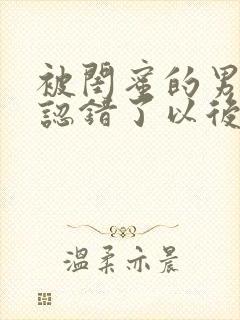 被閨蜜的男
認錯了以後
溫柔亦晨